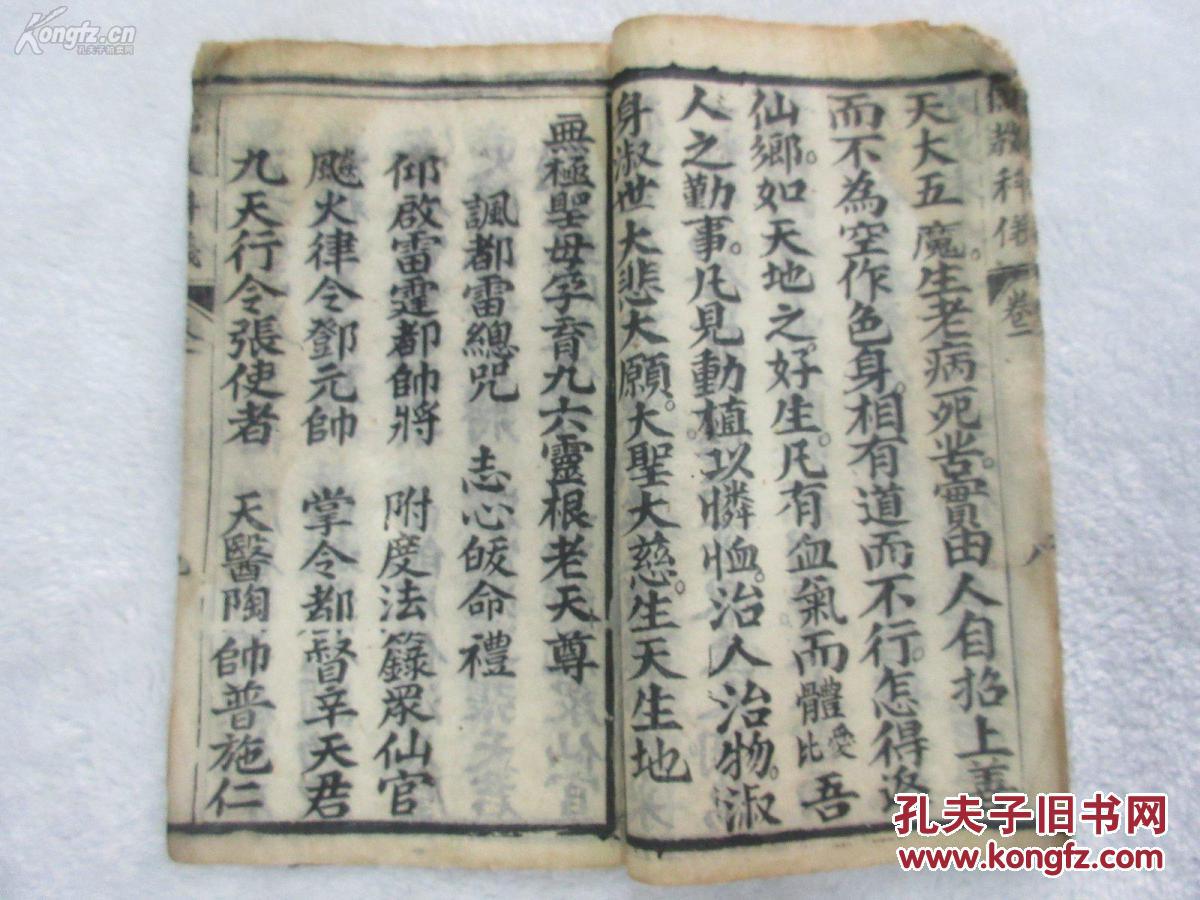 Kongfz.cn
孔夫子拍卖网
教科儀
卷二
八
天大五魔。生老病死苦。實由人自招上善
而不為空作色身。相有道而不行。怎得返
仙鄉。如天地之。好生。凡有血氣而體愛比吾
人之勤事。凡見動植以憐恤。治人治物。淑
身淑世大悲大願。大聖大慈。生天生地
無極聖母孕育九六靈根老天尊
諷都雷總咒 志心皈命禮
仰啟雷霆都帥將 附度法籙眾仙官
飚火律令鄧元帥 掌令都督辛天君
九天行令張使者 天醫陶帥普施仁
九
孔夫子旧书网
www.kongfz.com